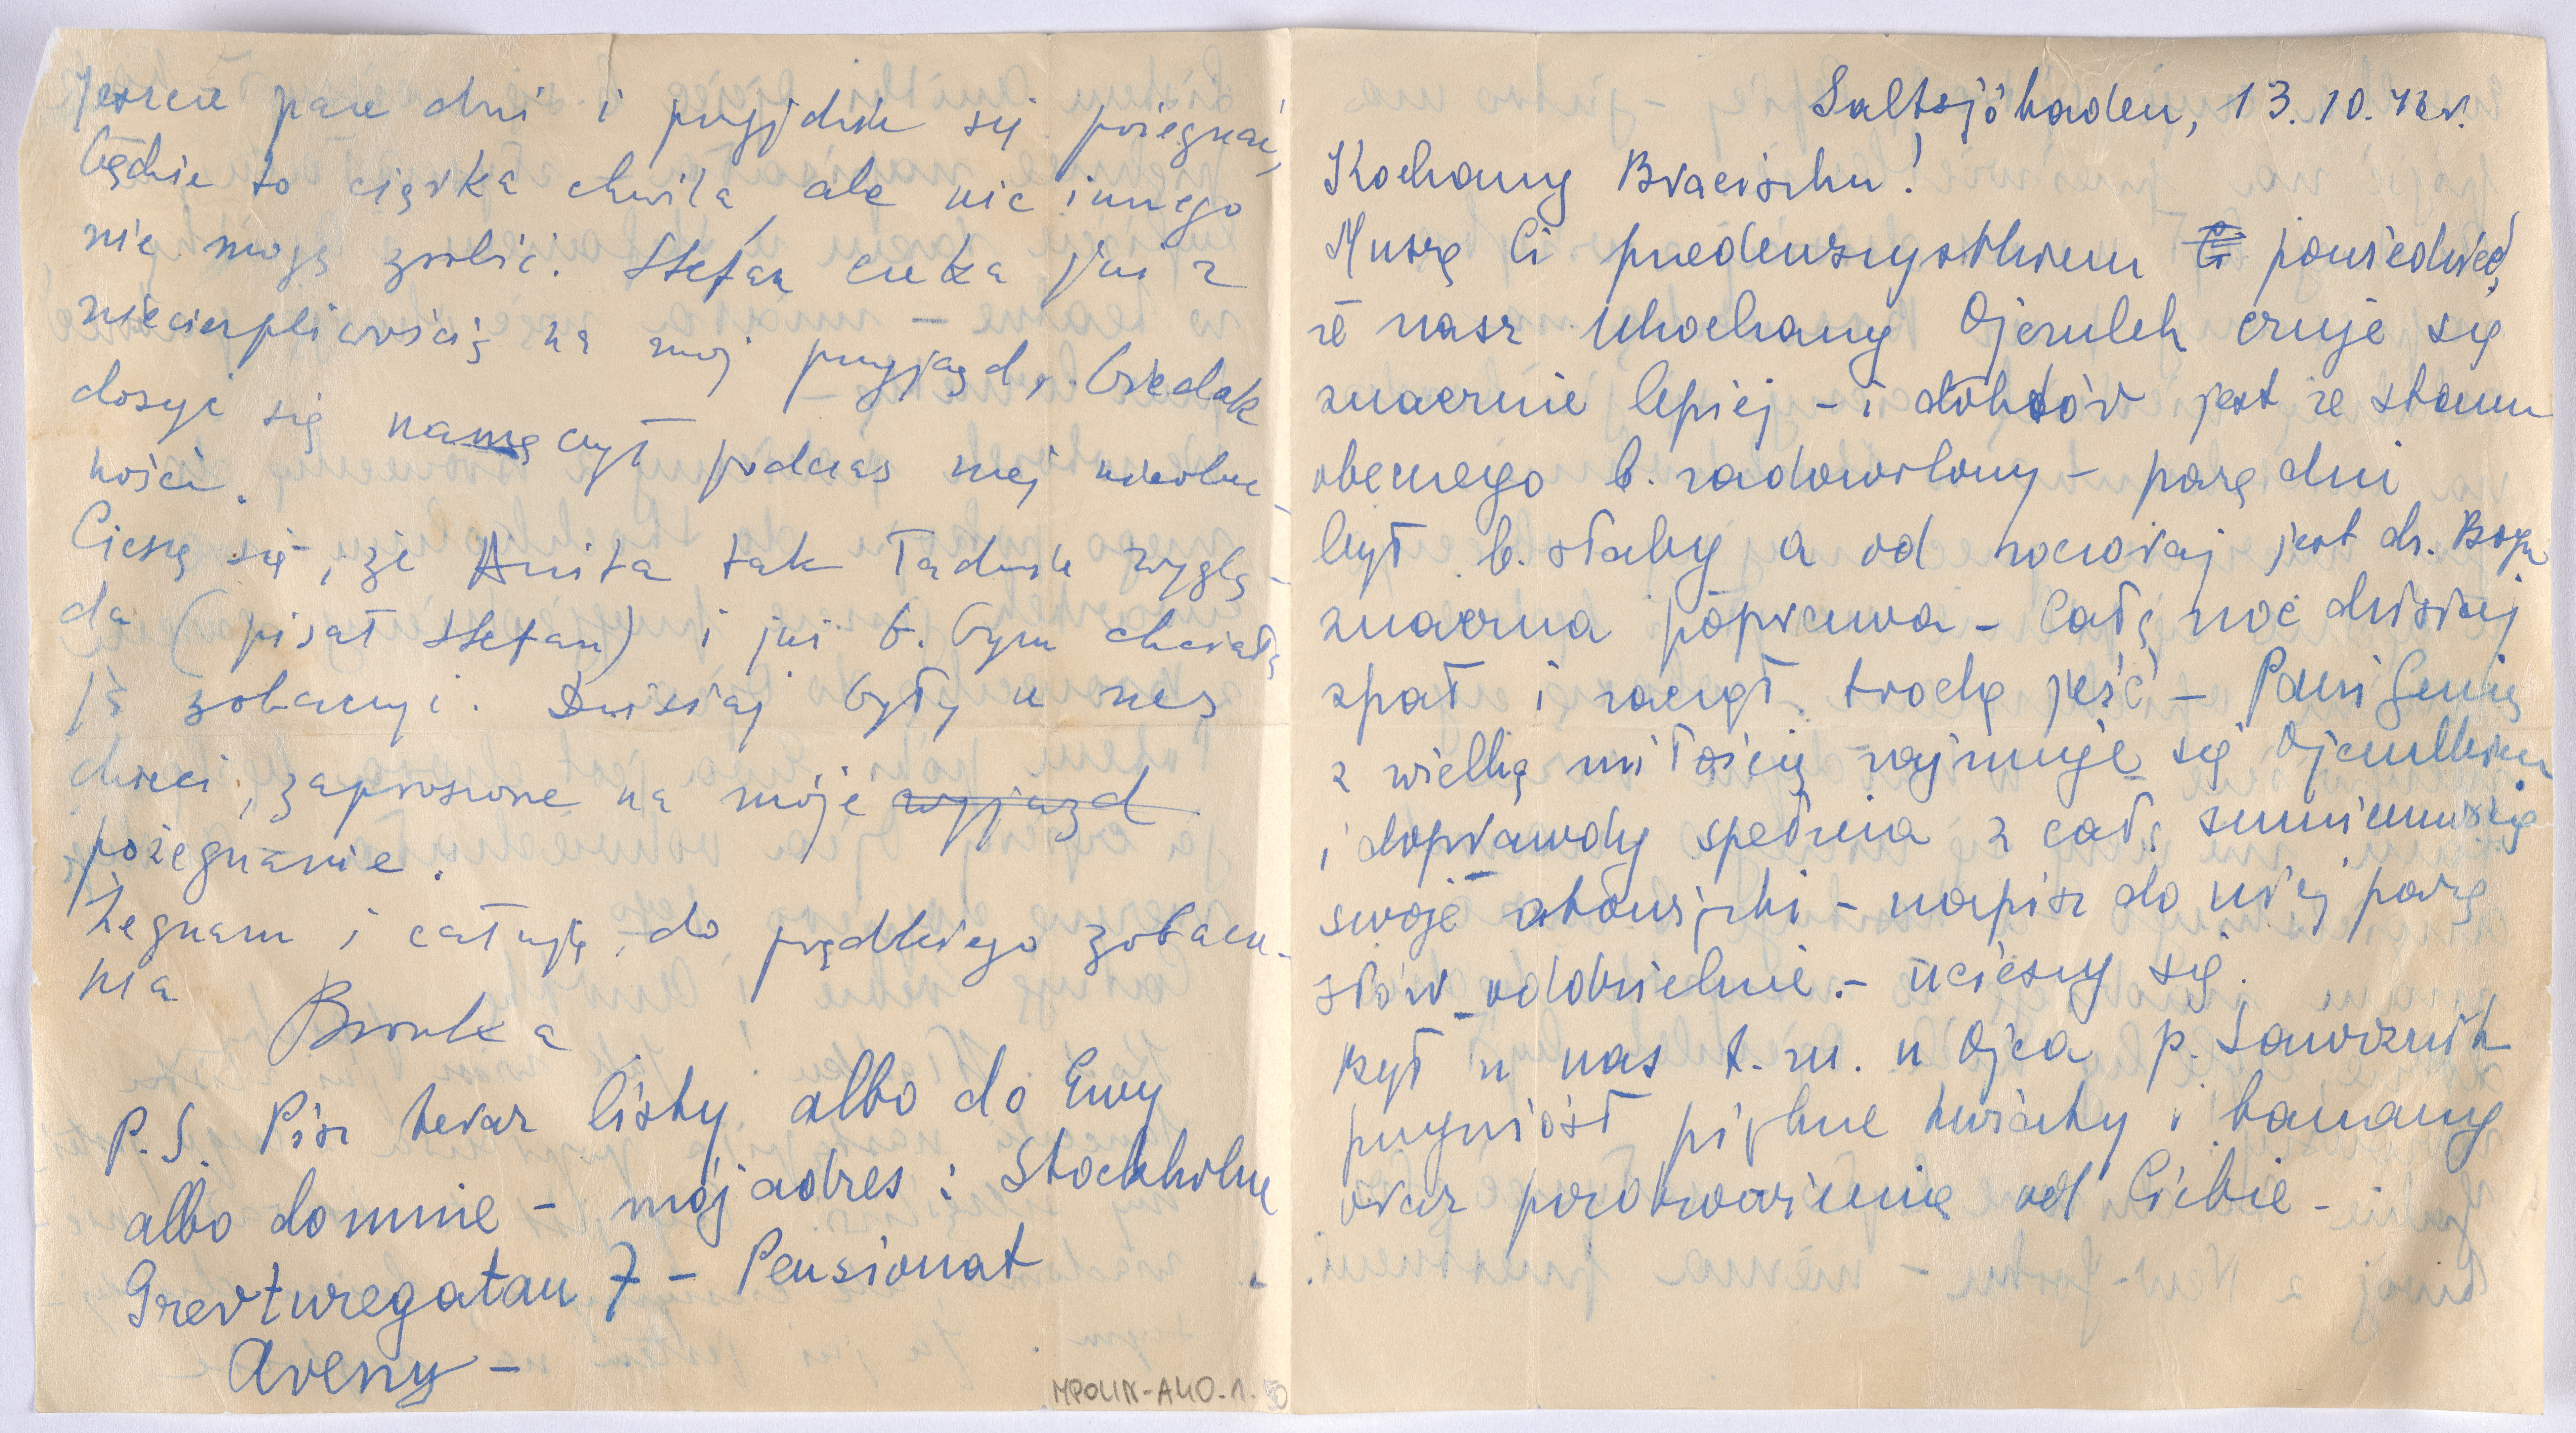 Saltsjöbaden, 13.10.48r.
Kochany Braciszku!
Muszę Ci przedewszystkiem Ci powiedzieć,
że nasz ukochany Ojczulek czuje się
znacznie lepiej – i doktór jest ze stanu
obecnego b. zadowolony – parę dni
był b. słaby a od wczoraj jest dz. Bogu
znaczna poprawa – Całą noc dzisiaj
spał i zaczął trochę jeść – Pani Genią
z wielką miłością zajmuje się Ojczulkiem
i doprawdy spełnia z całą sumiennością
swoje obowiązki – napisz do niej parę
słów oddzielnie. – ucieszy się.
Był u nas t. zn. u Ojca p. Ławoznik
przyniósł piękne kwiaty i banany
oraz pozdrowienie od Ciebie –
Jeszcze parę dni i przyjdzie się pożegnać,
będzie to ciężka chwila, ale nic innego
nie mogę zrobić. Stefan czeka już z
niecierpliwością na mój przyjazd, biedak
dosyć się namęczył podczas mej nieobec-
ności.
Cieszę się, że Anita tak ładnie wyglą-
da (pisał Stefan) i już b. bym chciała
ją zobaczyć. Dzisiaj były u nas
dzieci, zaproszone na moje wyjazd
pożegnanie.
Żegnam i całuję, do prędkiego zobacze-
nia
Bronka
P.S. Pisz teraz listy albo do Ewy
albo do mnie – mój adres: Stockholm
Grevturegatan 7 – Pensionat
Aveny –
MPOLIN-A40.1.50